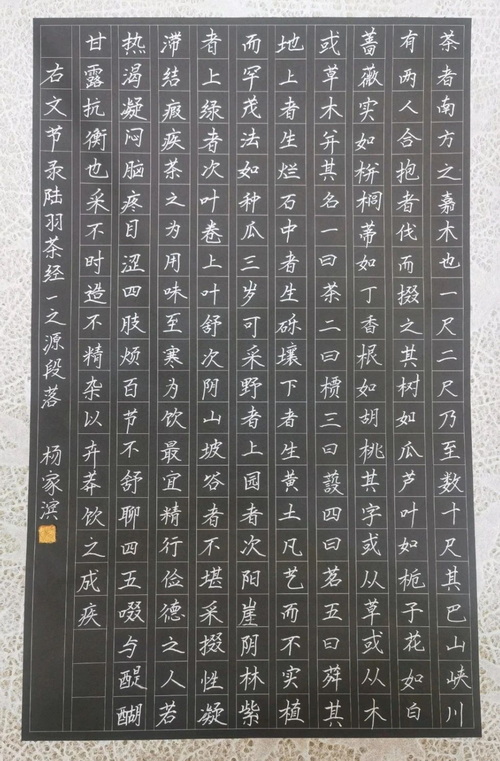 茶者南方之嘉木也一尺二尺乃至数十尺其巴山峡川
有两人合抱者伐而掇之其树如瓜芦叶如栀子花如白
蔷薇实如栟桐蒂如丁香根如胡桃其字或从草或从木
或草木并其名一曰茶二曰槚三曰蔎四曰茗五曰荈其
地上者生烂石中者生砾壤下者生黄土凡艺而不实植
而罕茂法如种瓜三岁可采野者上园者次阳崖阴林紫
者上绿者次叶卷上叶舒次阴山坡谷者不堪采掇性凝
滞结瘕疾茶之为用味至寒为饮最宜精行俭德之人若
热渴凝闷脑疼目涩四肢烦百节不舒聊四五啜与醍醐
甘露抗衡也采不时造不精杂以卉莽饮之成疾
右文节录陆羽茶经一之源段落 杨家滨